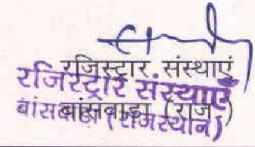 रजिस्ट्रार संस्थाएं
रजिस्ट्रार संस्थाएँ
बांसवाड़ा (राज.)
बांसवाड़ा (राजस्थान)